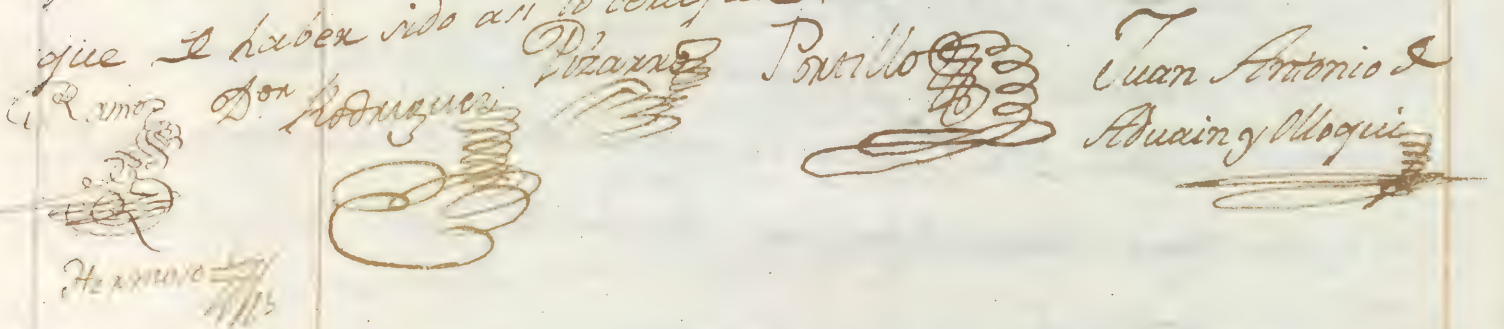 que de haber sido así lo certifico.
Ramos Dor Rodriguez Pizarro Portillo Juan Antonio de
Aduain y Olloqui
Hermoso